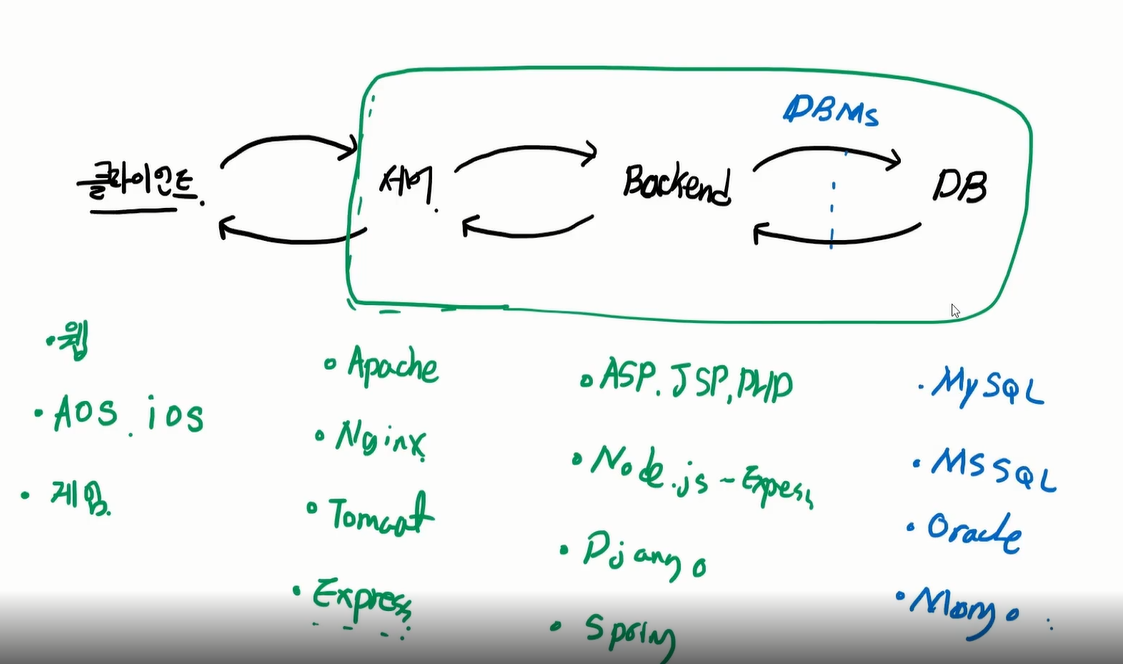 DBMS
클라이언트.
서버.
Backend
DB
•웹
•AOS. iOS
•게임.
•Apache
•Nginx
•Tomcat
•Express
•ASP. JSP, PHP
•Node.js - Express
•Django
•Spring
•MySQL
•MSSQL
•Oracle
•Mongo